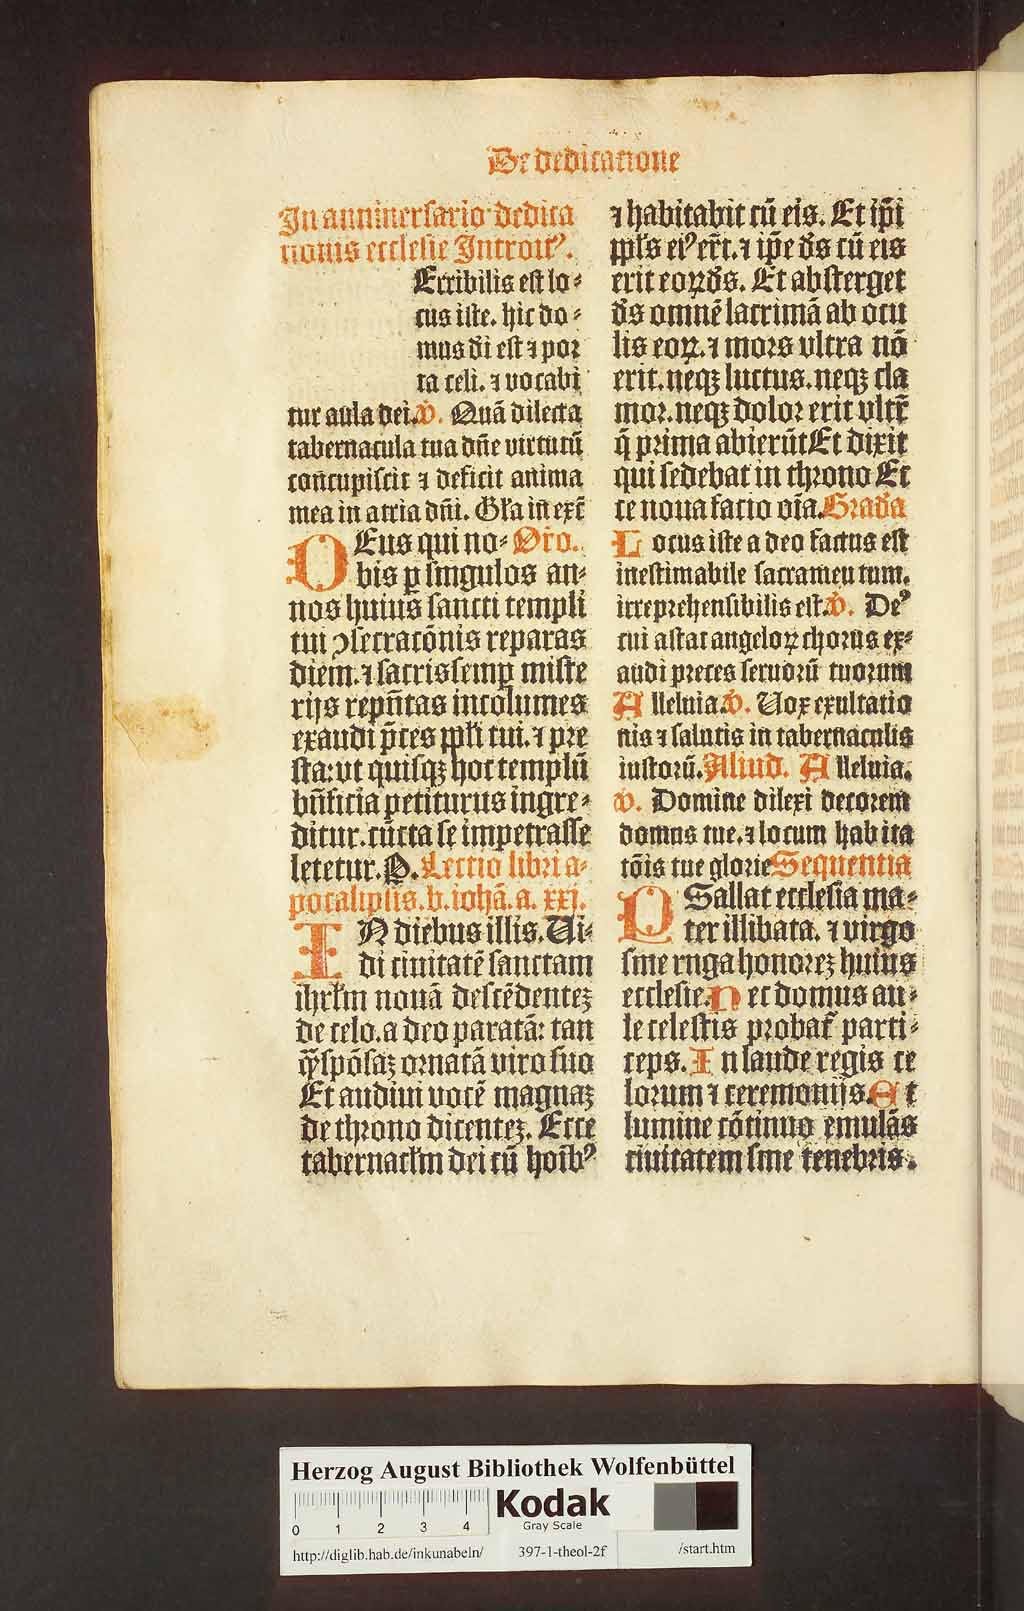 De dedicatione
In anniuersario dedica
tionis ecclesie Introitꝰ.
Erribilis est lo⸗
cus iste. hic do⸗
mus dei est ⁊ por
ta celi. ⁊ vocabi
tur aula dei. ℣. Quā dilecta
tabernacula tua dn̄e virtutū
concupiscit ⁊ deficit anima
mea in atria dn̄i. Gl'a in exc̄
DEus qui no⸗ Oro.
bis ꝑ singulos an⸗
nos huius sancti templi
tui ↄsecratōnis reparas
diem. ⁊ sacris semꝑ miste
rijs repn̄tas incolumes
exaudi p̄ces ppl'i tui. ⁊ pre
sta: vt quisqꝫ hoc templū
bn̄ficia petiturus ingre⸗
ditur. cūcta se impetrasse
letetur. P. Lectio libri a⸗
pocalipsis. b. iohā. a. xxj.
IN diebus illis. Ui⸗
di ciuitatē sanctam
ihrl'm nouā descēdenteꝫ
de celo. a deo paratā: tan
ꝙ̄ spōsaꝫ ornatā viro suo
Et audiui vocē magnaꝫ
de throno dicenteꝫ. Ecce
tabernacl'm dei cū hoib'ꝰ
⁊ habitabit cū eis. Et ip̄i
ppl's eiꝰ er̄t. ⁊ ip̄e d's cū eis
erit eoꝝ d's. Et absterget
d's omnē lacrimā ab ocu
lis eoꝝ. ⁊ mors vltra nō
erit. neqꝫ luctus. neqꝫ cla
mor. neqꝫ dolor erit vltr̄
q̄ prima abierūt Et dixit
qui sedebat in throno Ec
ce noua facio oīa. Grad'a
Locus iste a deo factus est
inestimabile sacramentum.
irreprehensibilis est. ℣. Deꝰ
cui astat angeloꝝ chorus ex⸗
audi preces seruorū tuorum
Alleluia. ℣. Uox exultatio
nis ⁊ salutis in tabernaculis
iustorū. Aliud. Alleluia.
℣. Domine dilexi decorem
domus tue. ⁊ locum habita
tōis tue glorie Sequentia
PSallat ecclesia ma⸗
ter illibata. ⁊ virgo
sine ruga honoreꝫ huius
ecclesie. Nec domus au⸗
le celestis probat' parti⸗
ceps. In laude regis ce
lorum ⁊ ceremonijs. Et
lumine cōtinuo emulās
ciuitatem sine tenebris.
Herzog August Bibliothek Wolfenbüttel
Kodak
Gray Scale
0 1 2 3 4
http://diglib.hab.de/inkunabeln/ 397-1-theol-2f /start.htm